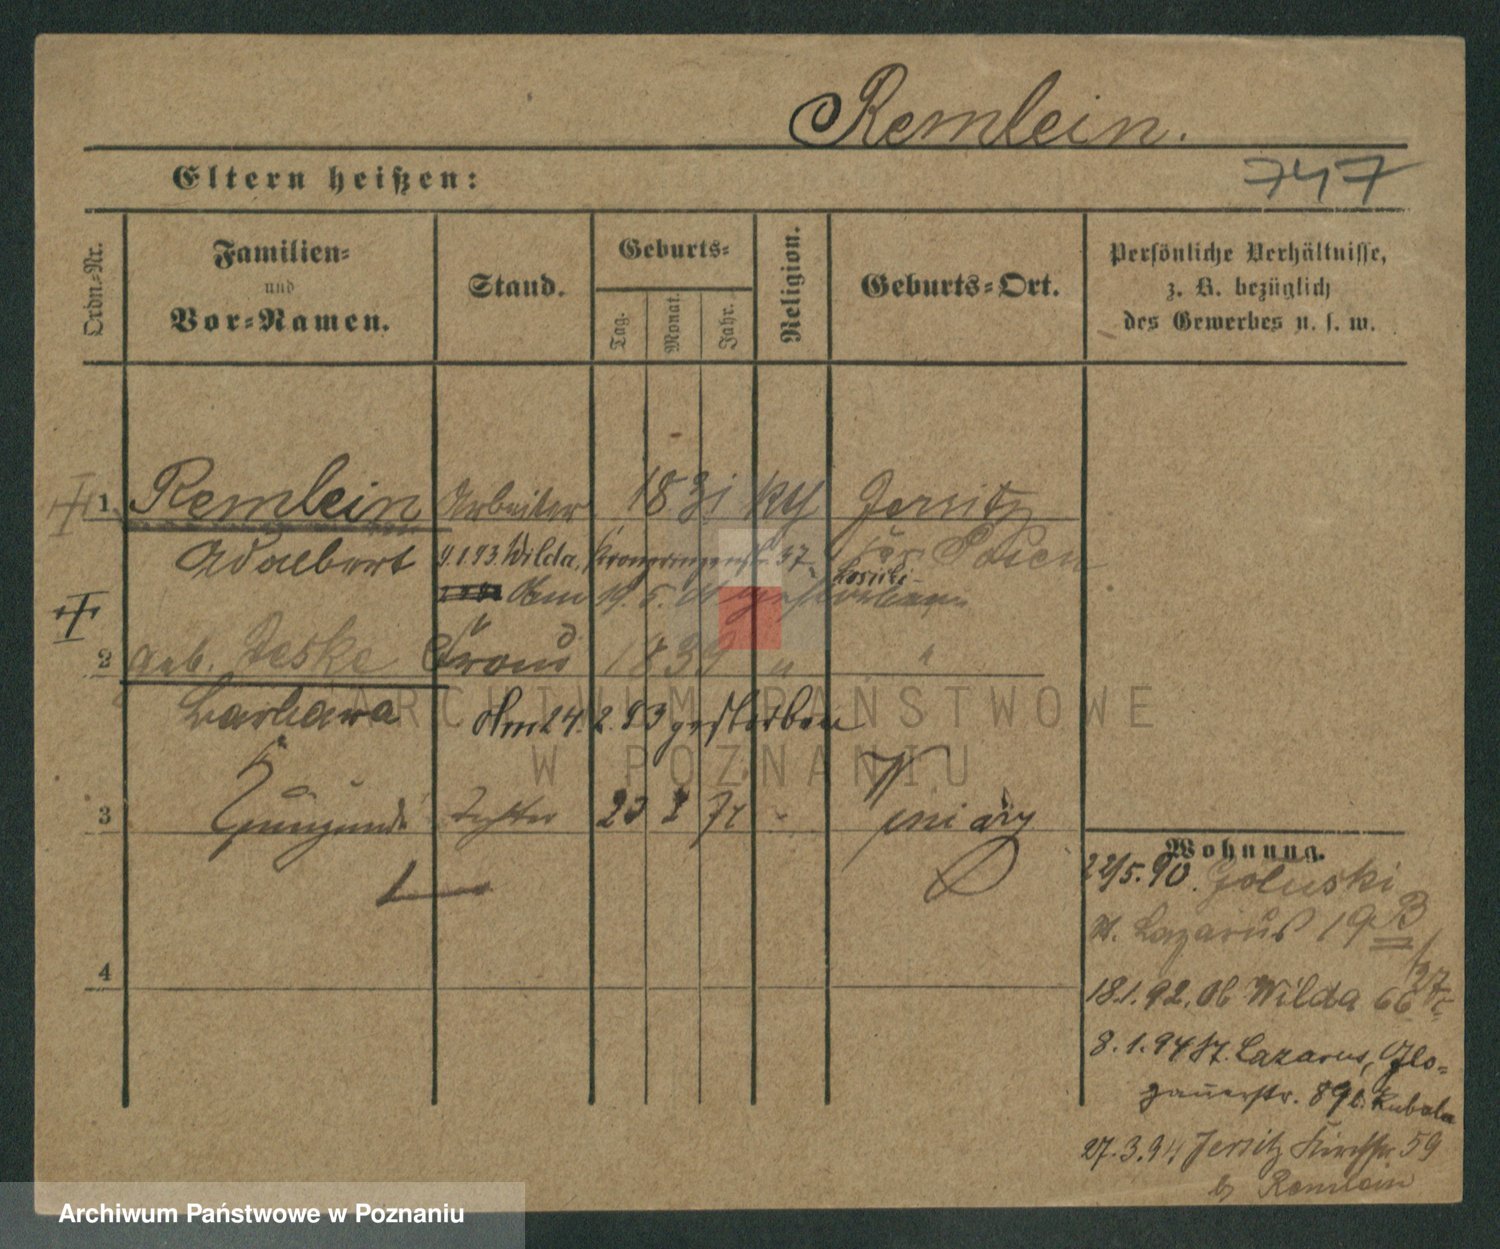 Remlein.
Eltern heißen:
747
Ordn.-Nr.
Familien-
und
Vor-Namen.
Stand.
Geburts-
Tag.
Monat.
Jahr.
Religion.
Geburts-Ort.
Persönliche Verhältnisse,
z. B. bezüglich
des Gewerbes u. s. w.
1 Remlein Arbeiter 1831 kth Jersitz
Adalbert 9.1.93. Wilda, Kronprinzenstr. 37 Posen
Am 19. 5. gestorben
2 geb. Jeske Frau 1839 " "
Barbara Am 24. 2. 93 gestorben
3 Kunigunde Tochter 23 2 74 -
4
Wohnung.
22/5. 90. Goluski
St. Lazarus 19 B
18.1.92. Ob Wilda 66
8.1.94 St. Lazarus, Glo-
gauerstr. 89 b. Kubala
27.3.94 Jersitz Kirchstr 59
b. Remlein
ARCHIWUM PAŃSTWOWE
W POZNANIU
Archiwum Państwowe w Poznaniu